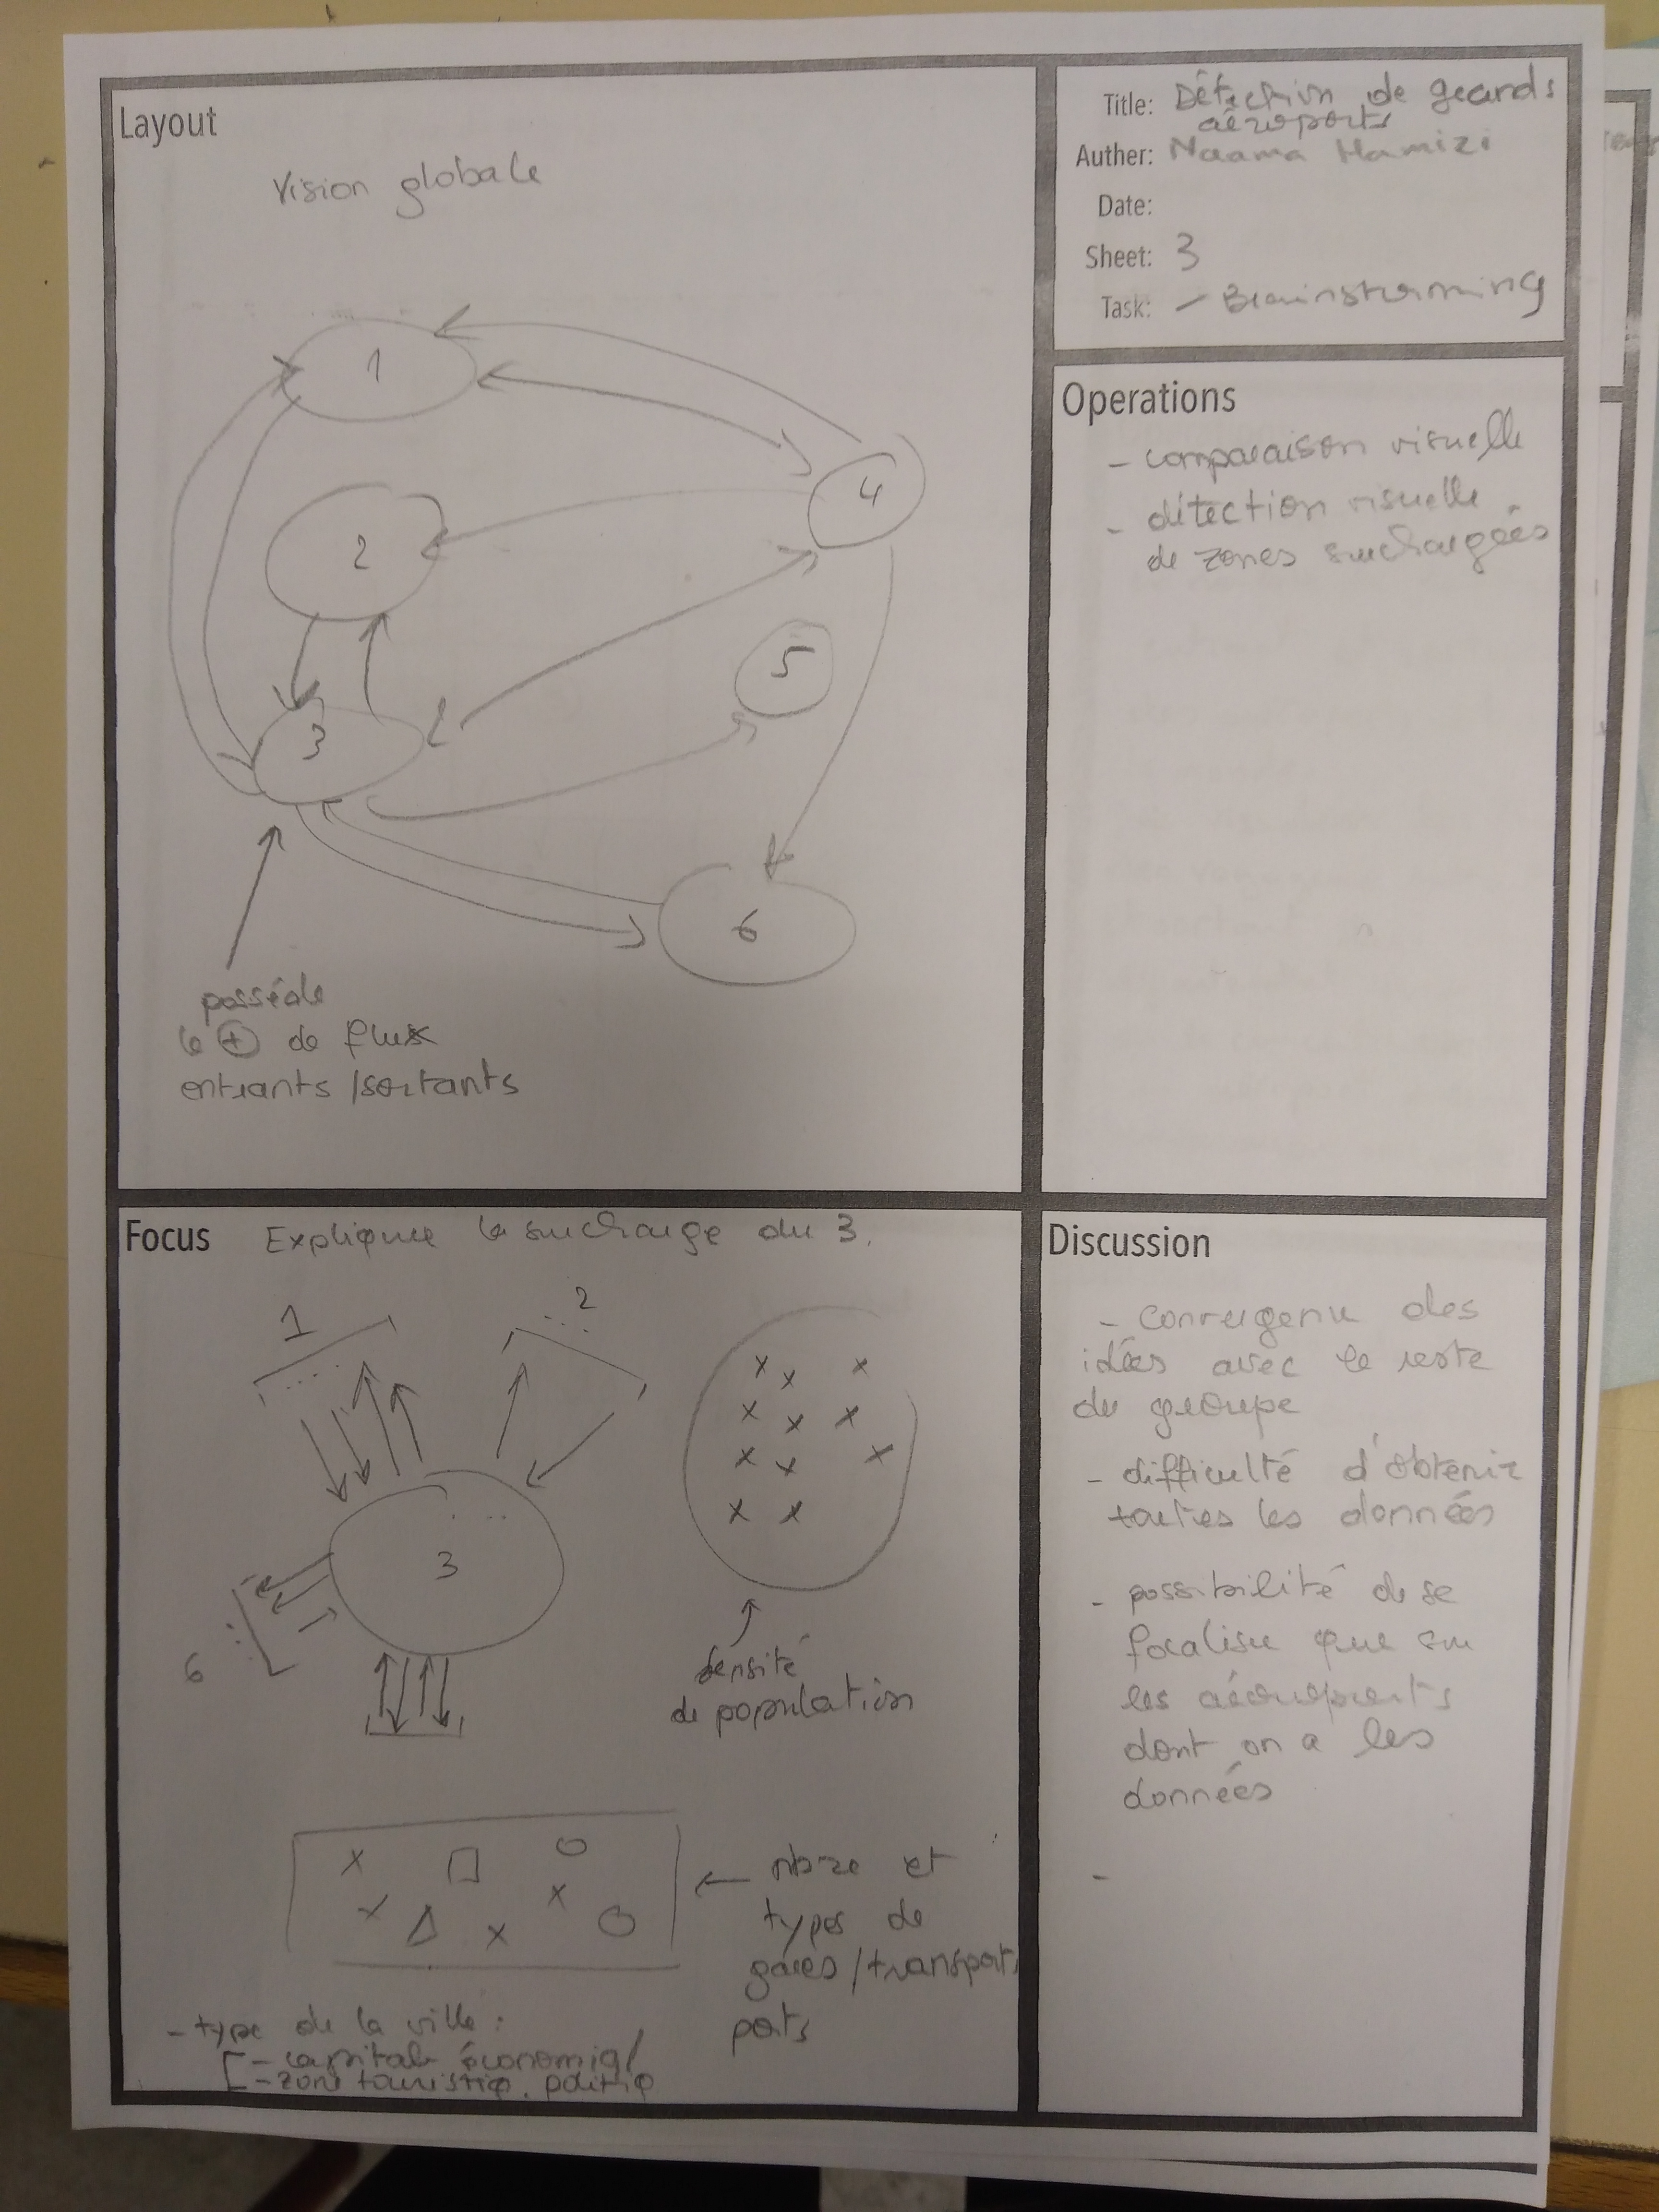 Layout
Vision globale
1
2
3
4
5
6
possède
le + de flux
entrants / sortants
Title: Détection de grands
aéroports
Auther: Naama Hamizi
Date:
Sheet: 3
Task: - Brainstorming
Operations
- comparaison visuelle
- détection visuelle
de zones surchargées
Focus Expliquer la surcharge du 3.
1
2
3
6
densité
de population
nbre et
types de
gares / transports
ports
- type de la ville :
- capitale économiq /
- zone touristiq. politiq
Discussion
- convergence des
idées avec le reste
du groupe
- difficulté d'obtenir
toutes les données
- possibilité de se
focaliser que sur
les aéroports
dont on a les
données
-